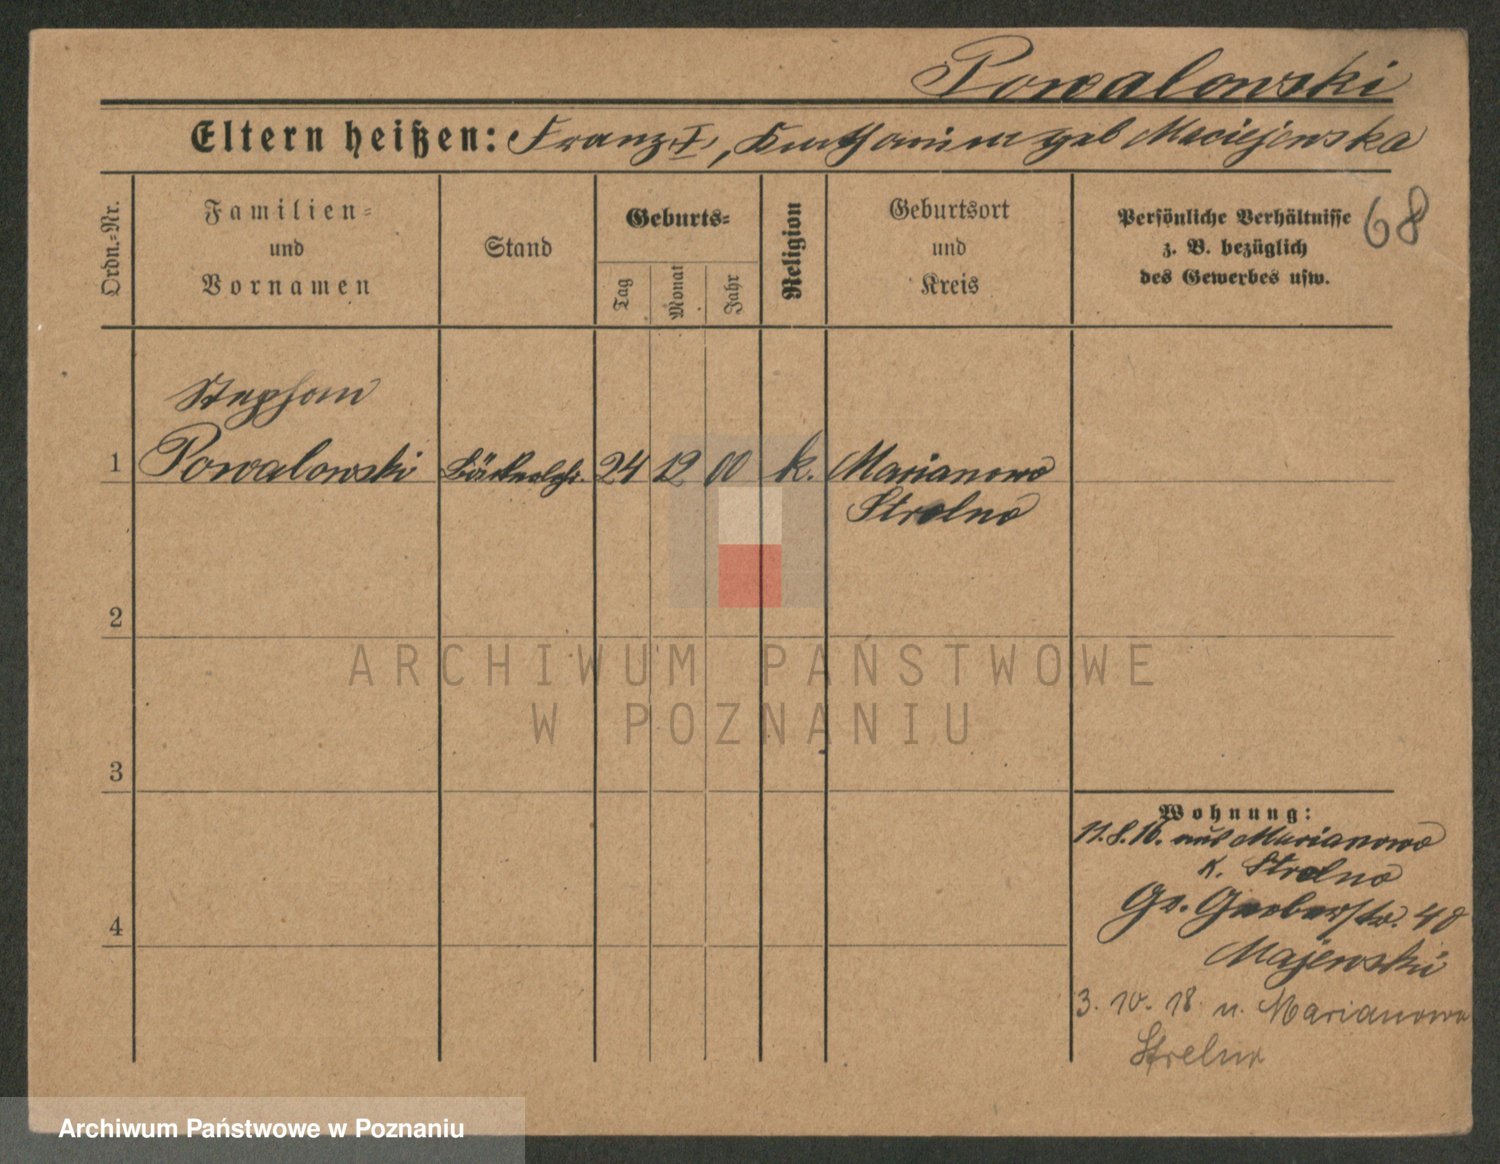 Powalowski
Eltern heißen: Franz I, Katharina geb Maciejewska
Ordn.-Nr.
Familien-
und
Vornamen
Stand
Geburts-
Tag
Monat
Jahr
Religion
Geburtsort
und
Kreis
Persönliche Verhältnisse
z. B. bezüglich
des Gewerbes usw.
68
Stephan
1 Powalowski Bäckerlehr. 24 12 00 k. Marianowo
Strelno
2
ARCHIWUM PAŃSTWOWE
W POZNANIU
3
Wohnung:
11.8.16. aus Marianowo
K. Strelno
4
Gr. Gerberstr. 40
Majewski
3. 10. 18. n. Marianowo
Strelno
Archiwum Państwowe w Poznaniu